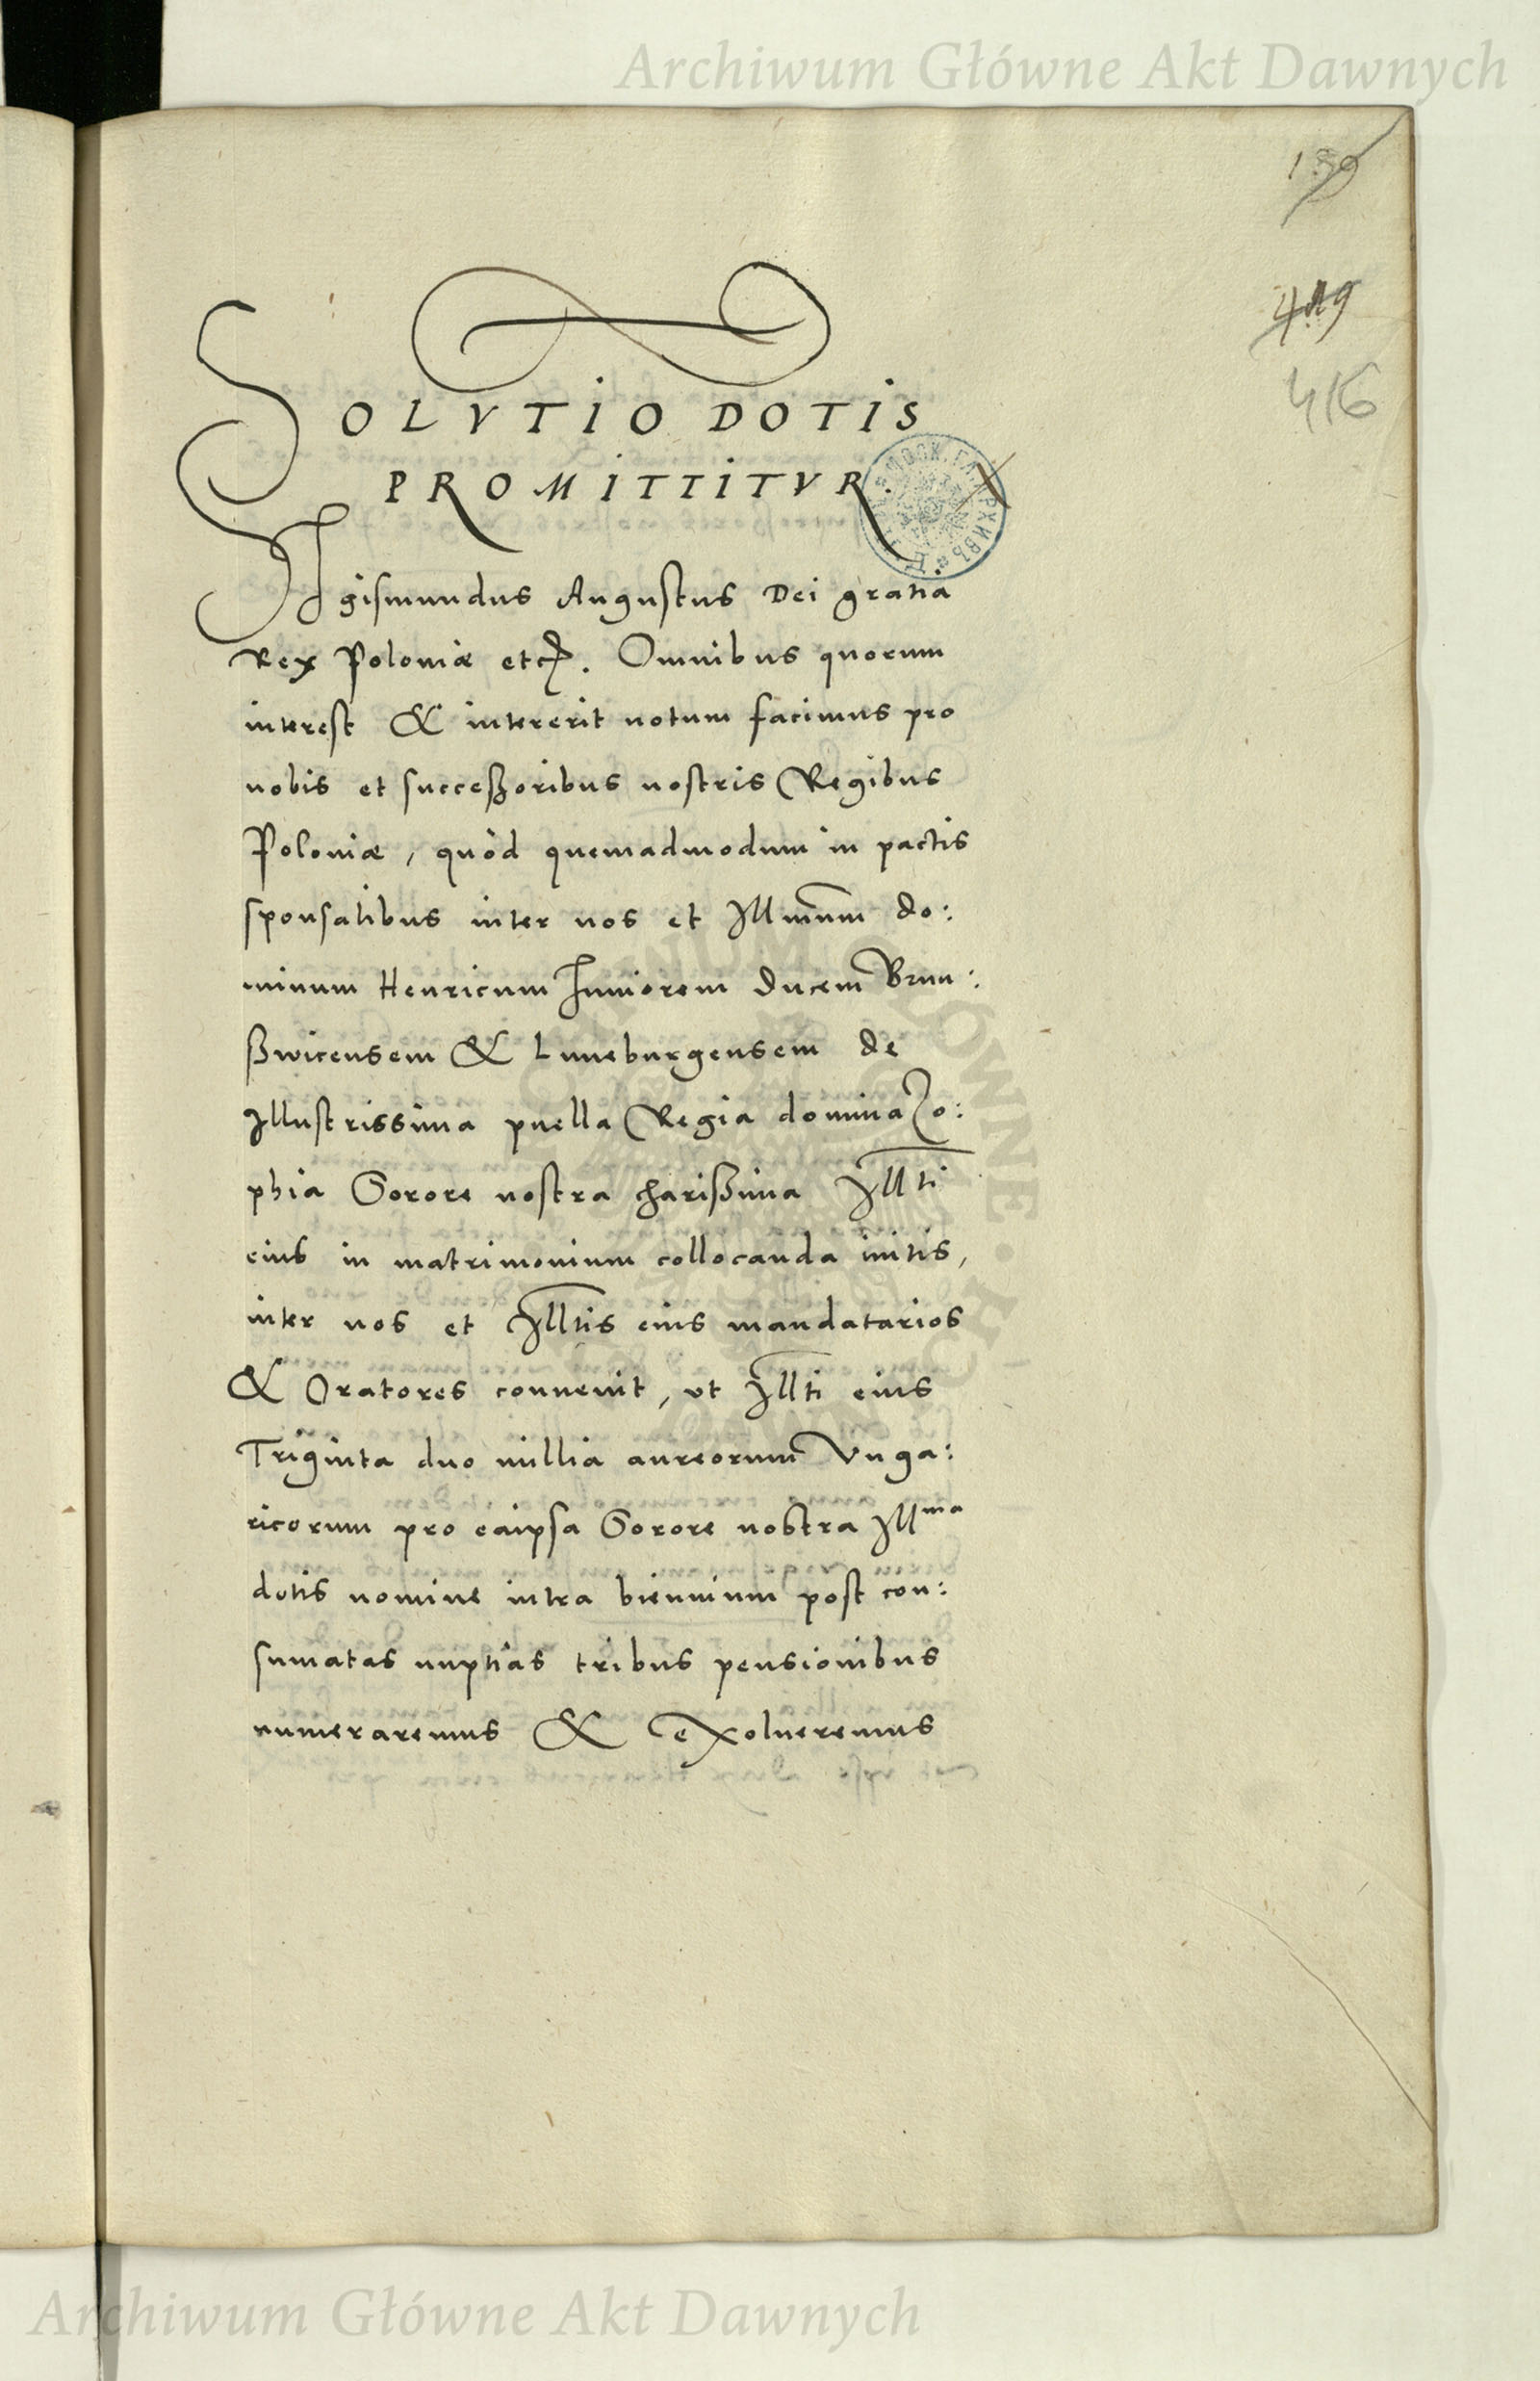 Archiwum Główne Akt Dawnych
419
416
SOLVTIO DOTIS
PROMITTITVR.
Sigismundus Augustus Dei gratia
Rex Poloniæ etc. Omnibus quorum
interest & intererit notum facimus pro
nobis et succeßoribus nostris Regibus
Poloniæ, quòd quemadmodum in pactis
sponsalibus inter nos et Illmum do:
minum Henricum Iuniorem Ducem Brun:
ßwicensem & Luneburgensem de
Illustrissima puella Regia domina Zo:
phia Sorore nostra charißima Illti
eius in matrimonium collocanda initis,
inter nos et Illtis eius mandatarios
& Oratores convenit, ut Illti eius
Triginta duo millia aureorum Vnga:
ricorum pro eaipsa Sorore nostra Illma
dotis nomine intra biennium post con:
sumatas nuptias tribus pensionibus
numeraremus & exolueremus
Archiwum Główne Akt Dawnych